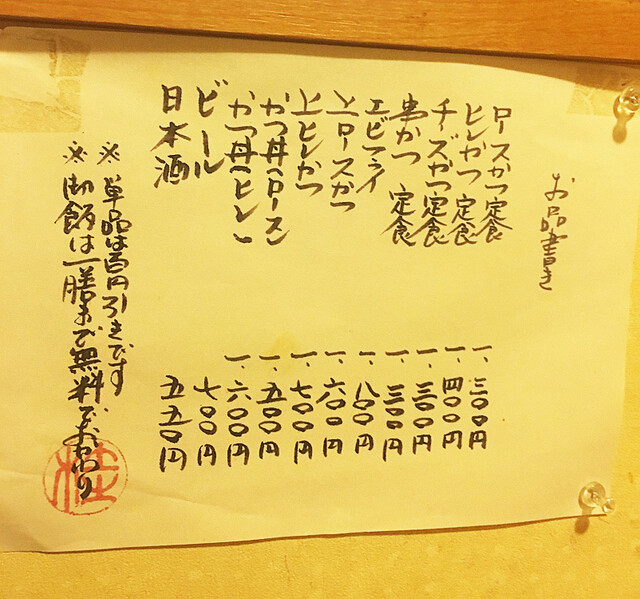 お品書き
ロースかつ定食 一、三〇〇円
ヒレかつ定食 一、四〇〇円
チーズかつ定食 一、三〇〇円
串かつ 定食 一、三〇〇円
エビフライ 一、八〇〇円
上ロースかつ 一、六〇〇円
上ヒレかつ 一、七〇〇円
かつ丼(ロース) 一、五〇〇円
かつ丼(ヒレ) 一、六〇〇円
ビール 七〇〇円
日本酒 五五〇円
※ 単品は百円引きです
※ 御飯は一膳まで無料でおかわり
桂